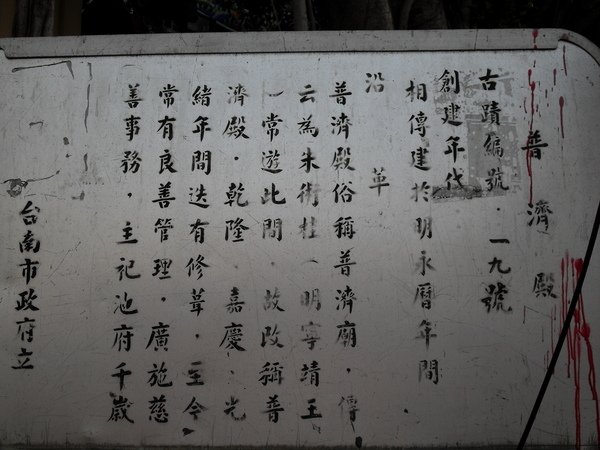 普濟殿
古蹟編號．一九號
創建年代
相傳建於明永曆年間．
沿革
普濟殿俗稱普濟廟．傳
云為朱術桂（明寧靖王
）常遊此間．故改稱普
濟殿．乾隆．嘉慶．光
緒年間迭有修葺．至今
常有良善管理．廣施慈
善事務．主祀池府千歲
台南市政府立